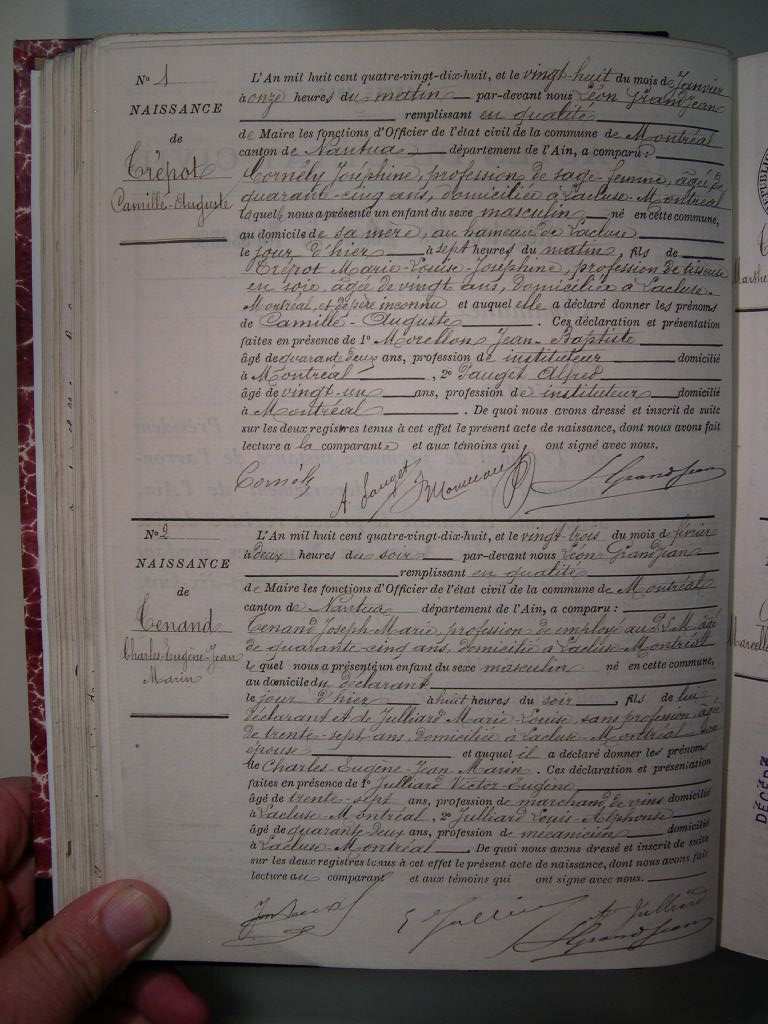 No 1
NAISSANCE
de
Trépot
Camille-Auguste
L'An mil huit cent quatre-vingt-dix-huit, et le vingt-huit du mois de Janvier
à onze heures du matin par-devant nous Léon Grandjean
remplissant en qualité
de Maire les fonctions d'Officier de l'état civil de la commune de Montréal
canton de Nantua département de l'Ain, a comparu :
Cornély Joséphine, profession de sage-femme, âgée de
quarante-cinq ans, domiciliée à Lacluse-Montréal
laquelle nous a présenté un enfant du sexe masculin né en cette commune,
au domicile de sa mère, au hameau de Lacluse
le jour d'hier à sept heures du matin fils de
Trépot Marie-Louise-Joséphine, profession de tisseuse
en soie, âgée de vingt ans, domiciliée à Lacluse-
Montréal, et de père inconnu et auquel elle a déclaré donner les prénoms
de Camille-Auguste . Ces déclaration et présentation
faites en présence de 1o Morellon Jean-Baptiste
âgé de quarante deux ans, profession de instituteur domicilié
à Montréal , 2o Jauget Alfred
âgé de vingt-un ans, profession de instituteur domicilié
à Montréal . De quoi nous avons dressé et inscrit de suite
sur les deux registres tenus à cet effet le présent acte de naissance, dont nous avons fait
lecture à la comparante et aux témoins qui ont signé avec nous.
Cornély A Jauget LGrandjean
No 2
NAISSANCE
de
Tenand
Charles-Eugène-Jean
Marin
L'An mil huit cent quatre-vingt-dix-huit, et le vingt trois du mois de février
à deux heures du soir par-devant nous Léon Grandjean
remplissant en qualité
de Maire les fonctions d'Officier de l'état civil de la commune de Montréal
canton de Nantua département de l'Ain, a comparu :
Tenand Joseph-Marie, profession de employé au P.L.M. âgé
de quarante-cinq ans, domicilié à Lacluse-Montréal
lequel nous a présenté un enfant du sexe masculin né en cette commune,
au domicile du déclarant
le jour d'hier à huit heures du soir , fils de lui
déclarant et de Julliard Marie-Louise sans profession, âgée
de trente-sept ans, domiciliée à Lacluse-Montréal son
épouse et auquel il a déclaré donner les prénoms
de Charles-Eugène-Jean Marin . Ces déclaration et présentation
faites en présence de 1o Julliard Victor Eugène
âgé de trente-sept ans, profession de marchand de vins domicilié
à Lacluse-Montréal , 2o Julliard Louis-Alphonse
âgé de quarante deux ans, profession de mécanicien domicilié
à Lacluse-Montréal . De quoi nous avons dressé et inscrit de suite
sur les deux registres tenus à cet effet le présent acte de naissance, dont nous avons fait
lecture au comparant et aux témoins qui ont signé avec nous.
Julliard
LGrandjean
DÉCÉDÉ